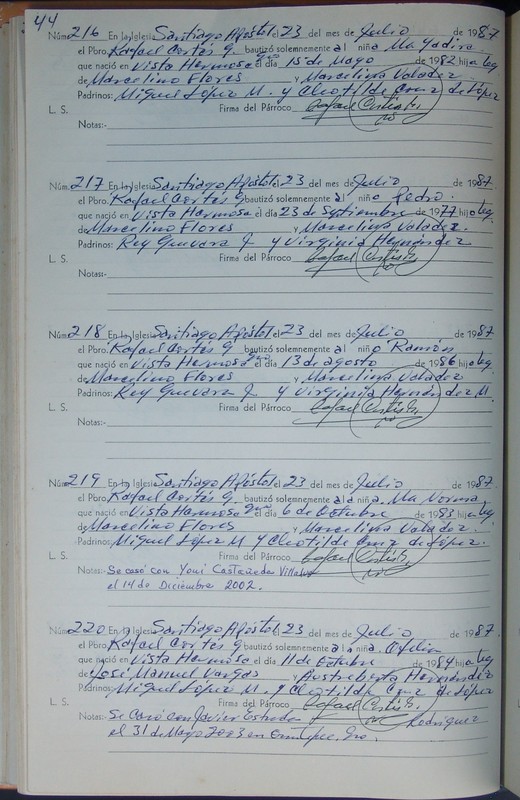 44
Núm. 216 En la Iglesia Santiago Apóstol el 23 del mes de Julio de 1987
el Pbro. Rafael Cortés G. bautizó solemnemente al niña Ma Yadira
que nació en Vista Hermosa el día 15 de Mayo de 1982 hija leg.
de Marcelino Flores y Marcelina Valadez
Padrinos: Miguel López M. y Cleotilde Cruz de López
L. S. Firma del Párroco Rafael Cortés G.
Notas:-
Núm. 217 En la Iglesia Santiago Apóstol el 23 del mes de Julio de 1987.
el Pbro. Rafael Cortés G bautizó solemnemente al niño Pedro.
que nació en Vista Hermosa el día 23 de Septiembre de 1977 hijo leg.
de Marcelino Flores y Marcelina Valadez.
Padrinos: Rey Guevara J y Virginia Hernández
L. S. Firma del Párroco Rafael Cortés G.
Notas:-
Núm. 218 En la Iglesia Santiago Apóstol el 23 del mes de Julio de 1987
el Pbro. Rafael Cortés G bautizó solemnemente al niño Ramón
que nació en Vista Hermosa el día 13 de agosto de 1986 hijo leg
de Marcelino Flores y Marcelina Valadez
Padrinos: Rey Guevara J y Virginia Hernández M.
L. S. Firma del Párroco Rafael Cortés G.
Notas:-
Núm. 219 En la Iglesia Santiago Apóstol el 23 del mes de Julio de 1987.
el Pbro. Rafael Cortés G. bautizó solemnemente a la niña. Ma Norma
que nació en Vista Hermosa el día 6 de Octubre de 1983 hija leg
de Marcelino Flores y Marcelina Valadez.
Padrinos: Miguel López M y Cleotilde Cruz de López.
L. S. Firma del Párroco Rafael Cortés G.
Notas:- Se casó con Yoni Castañeda
el 14 de Diciembre 2002.
Núm. 220 En la Iglesia Santiago Apóstol el 23 del mes de Julio de 1987.
el Pbro. Rafael Cortés G bautizó solemnemente a la niña Ofelia
que nació en Vista Hermosa el día 11 de Octubre de 1984 hija leg
de José Manuel Vargas y Austreberta Hernández
Padrinos: Miguel López M. y Cleotilde Cruz de López
L. S. Firma del Párroco Rafael Cortés G.
Notas:- Se Casó con Javier Estrada Rodríguez
el 31 de Mayo 2003 en